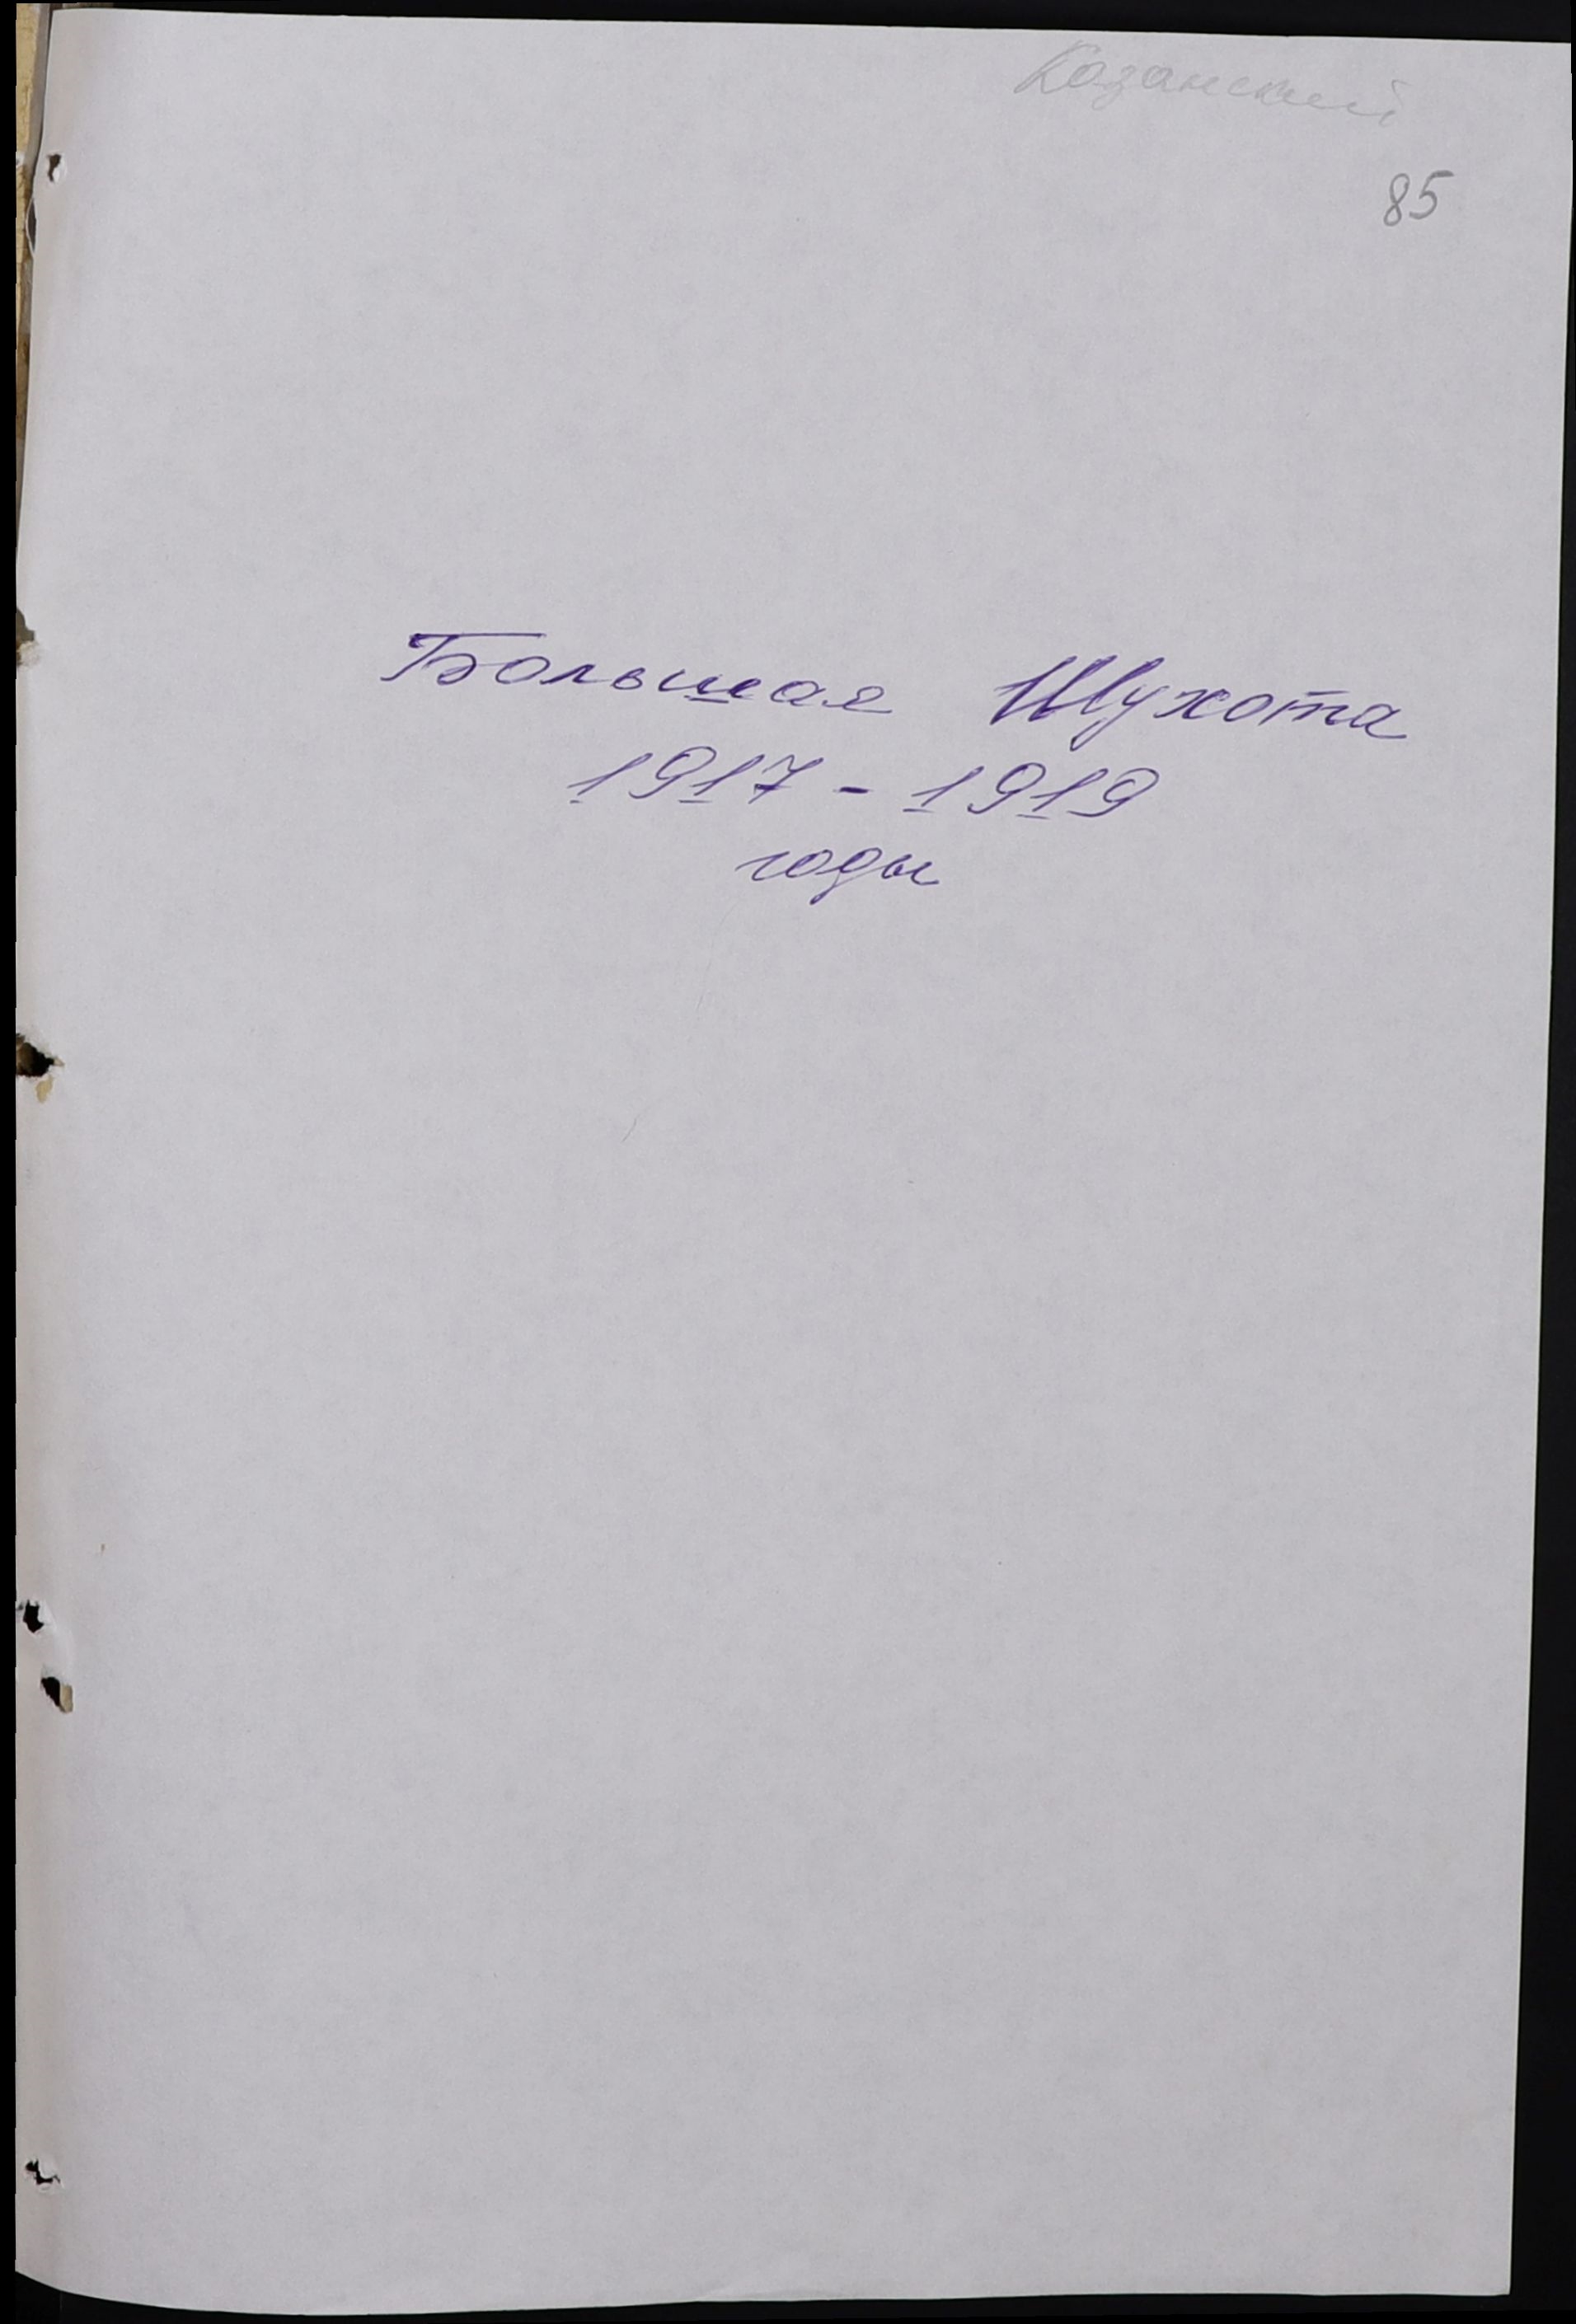 Казанский
85
Большая Шухота
1917 - 1919
годы